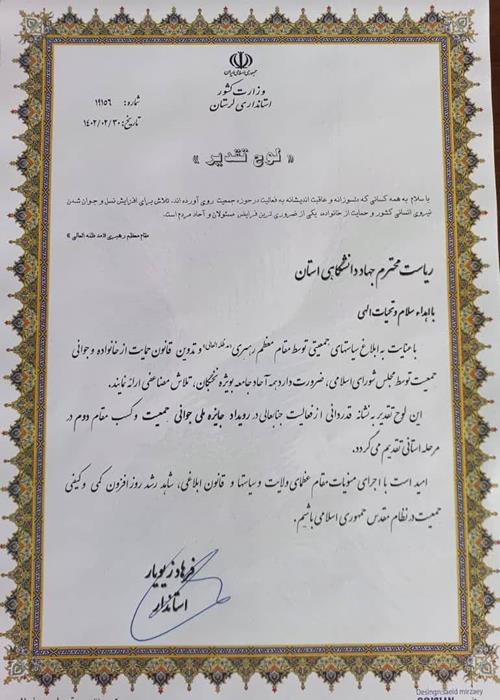 جمهوری اسلامی ایران
وزارت کشور
استانداری لرستان
شماره: ۱۹۱۵۶
تاریخ: ۱۴۰۲/۰۲/۳۰
« لوح تقدیر »
با سلام به همه کسانی که دلسوزانه و عاقبت اندیشانه به فعالیت در حوزه جمعیت روی آورده اند. تلاش برای افزایش نسل و جوان شدن
نیروی انسانی کشور و حمایت از خانواده، یکی از ضروری ترین فرایض مسئولان و آحاد مردم است.
مقام معظم رهبری «مد ظله العالی»
ریاست محترم جهاد دانشگاهی استان
با اهداء سلام و تحیات الهی
با عنایت به ابلاغ سیاستهای جمعیتی توسط مقام معظم رهبری «مد ظله العالی» و تدوین قانون حمایت از خانواده و جوانی
جمعیت توسط مجلس شورای اسلامی، ضرورت دارد همه آحاد جامعه بویژه نخبگان، تلاش مضاعفی ارائه نمایند.
این لوح تقدیر به نشانه قدردانی از فعالیت جنابعالی در رویداد جایزه ملی جوانی جمعیت و کسب مقام دوم در
مرحله استانی تقدیم می گردد.
امید است با اجرای منویات مقام عظمای ولایت و سیاستها و قانون ابلاغی، شاهد رشد روز افزون کمی و کیفی
جمعیت در نظام مقدس جمهوری اسلامی باشیم.
فرهاد زیویار
استاندار
Desingn:saeid mirzaey